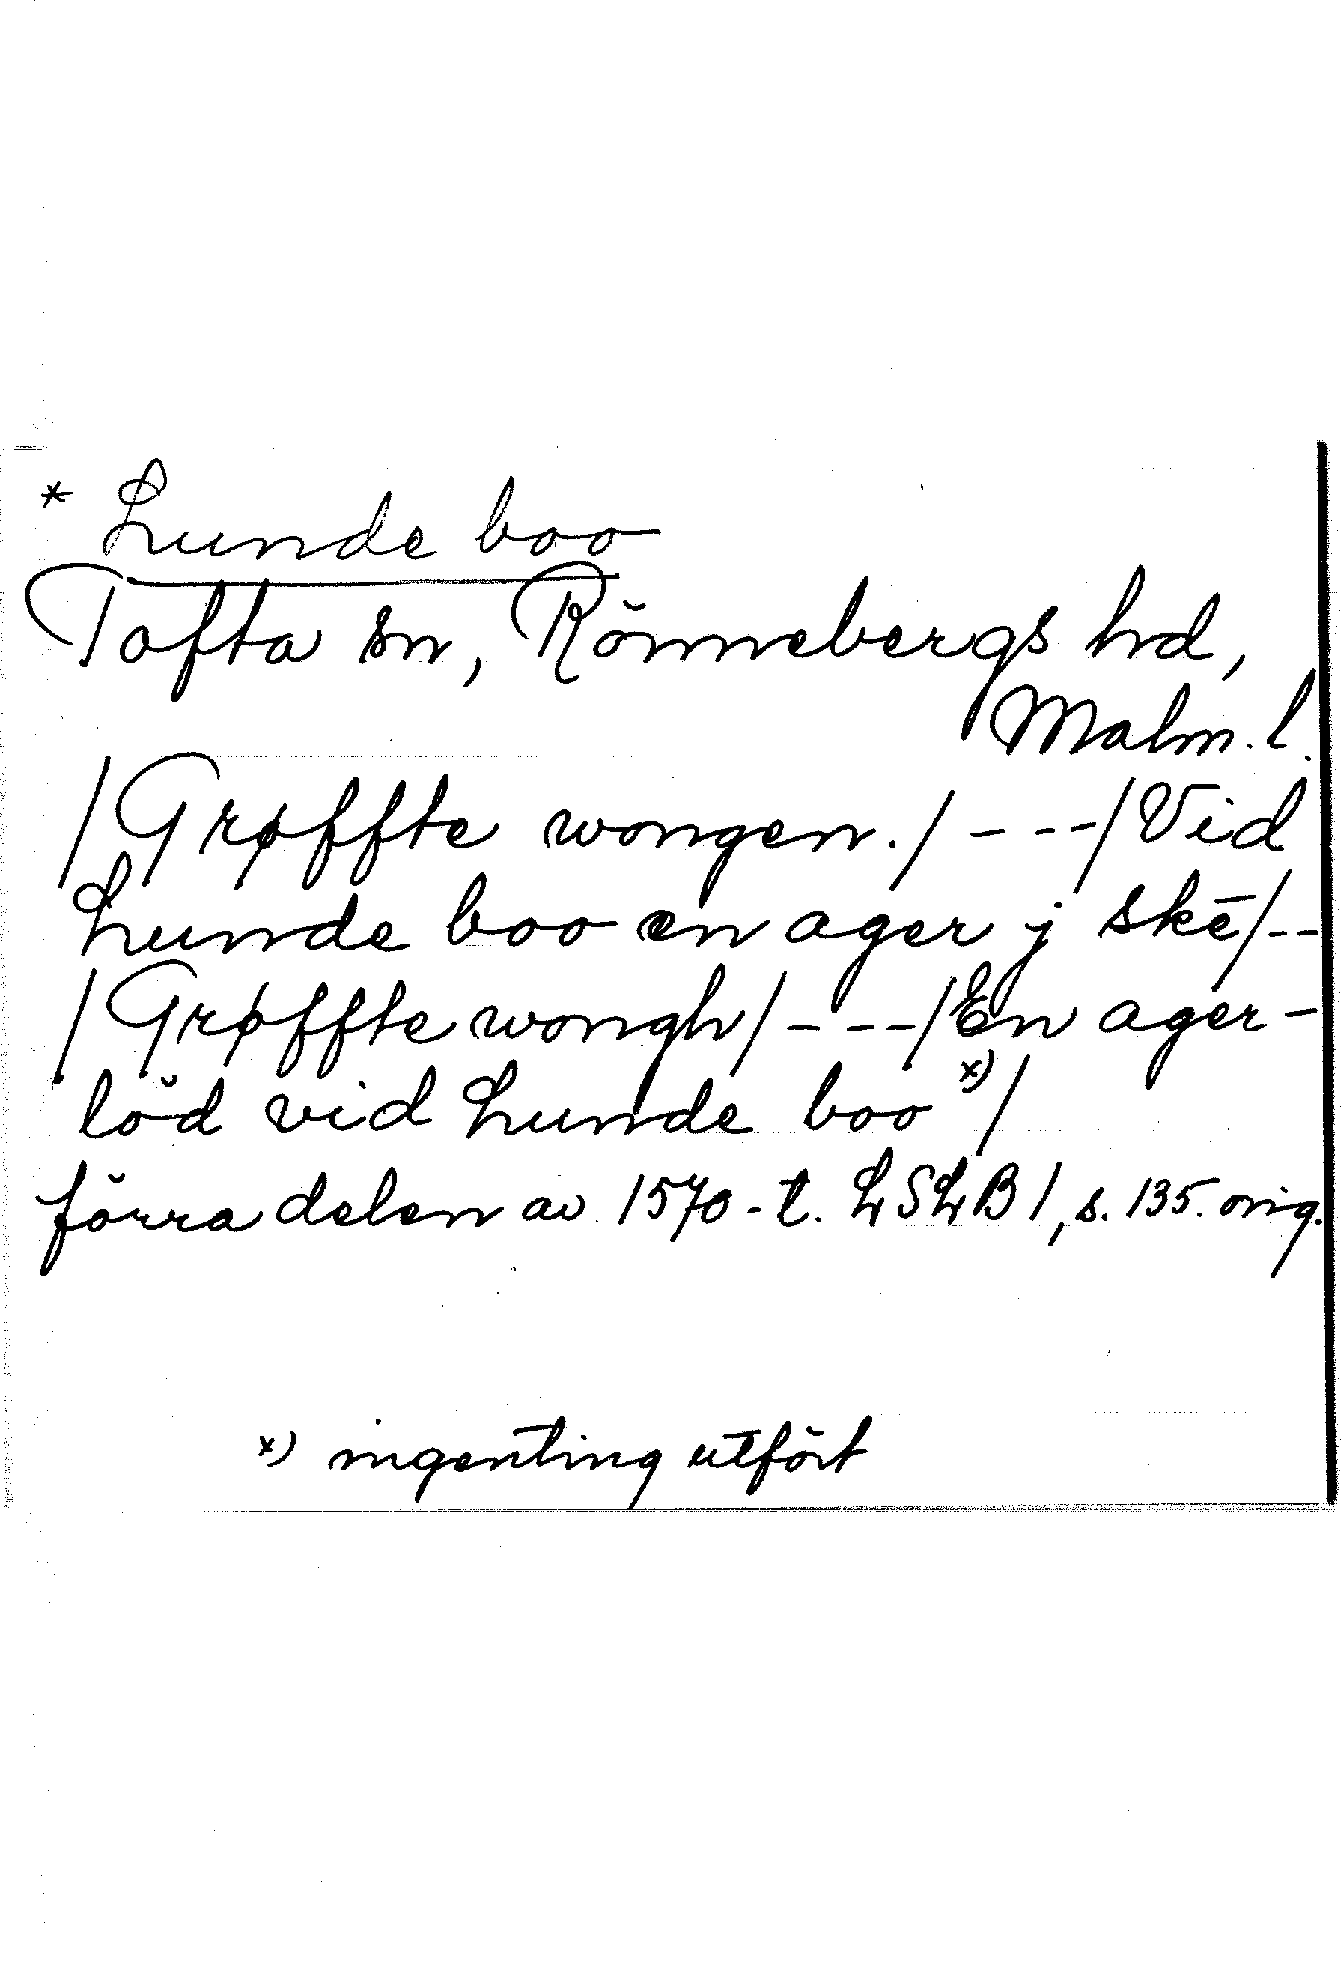 * Lunde boo
Tofta sn, Rönnebergs hd,
Malm. l.
/Grøffte wongen./ - - -/Vid
Lunde boo en ager j skē/--
/Grøffte wongh/ - - -/En ager-
löd vid Lunde boo x)/
förra delen av 1570-t. LSLB 1, s. 135. orig.
x) ingenting utfört